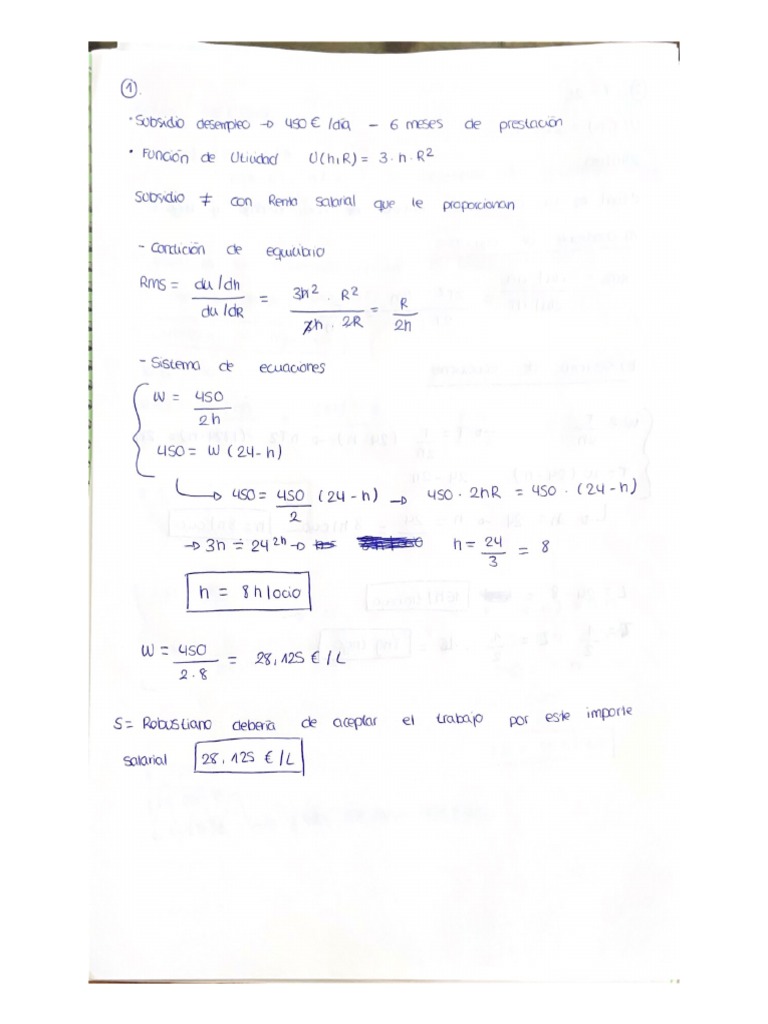 ①.
· Subsidio desempleo → 450 € /día – 6 meses de prestación
· Función de Utilidad U(h,R) = 3·h·R²
Subsidio ≠ con Renta salarial que le proporcionan
- Condición de equilibrio
RMS = du/dh / du/dR = 3h² · R² / 3h · 2R = R / 2h
- Sistema de ecuaciones
W = 450 / 2h
450 = W (24-h)
→ 450 = 450 / 2 (24-h) → 450 · 2hR = 450 · (24-h)
→ 3h = 24 2h → h = 24 / 3 = 8
h = 8h/ocio
W = 450 / 2·8 = 28,125 €/L
S = Robustiano debería de aceptar el trabajo por este importe
salarial 28,125 €/L